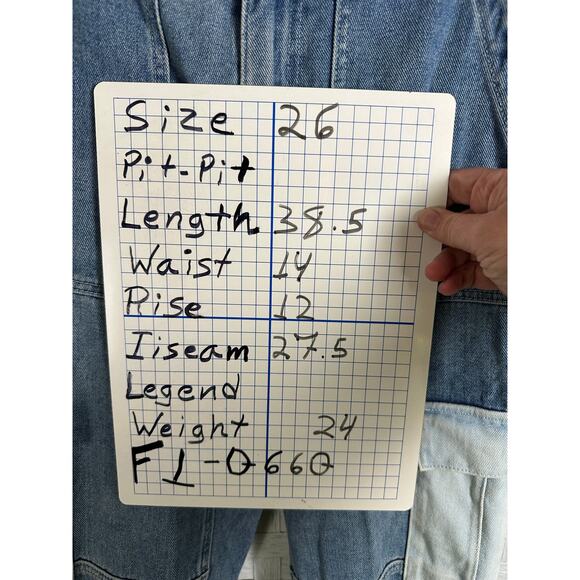 Size 26
Pit-Pit
Length 38.5
Waist 14
Rise 12
Iiseam 27.5
Legend
Weight 24
F1-0660